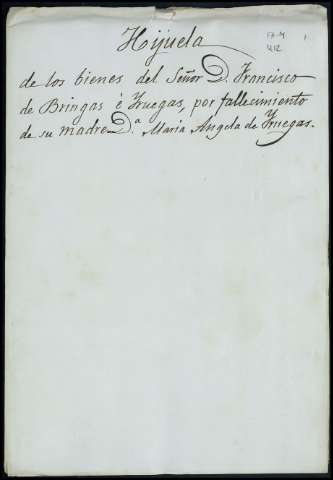 Hijuela
de los bienes del Señor D. Francisco
de Bringas é Yruegas, por fallecimiento
de su madre D.ª Maria Angela de Yruegas.